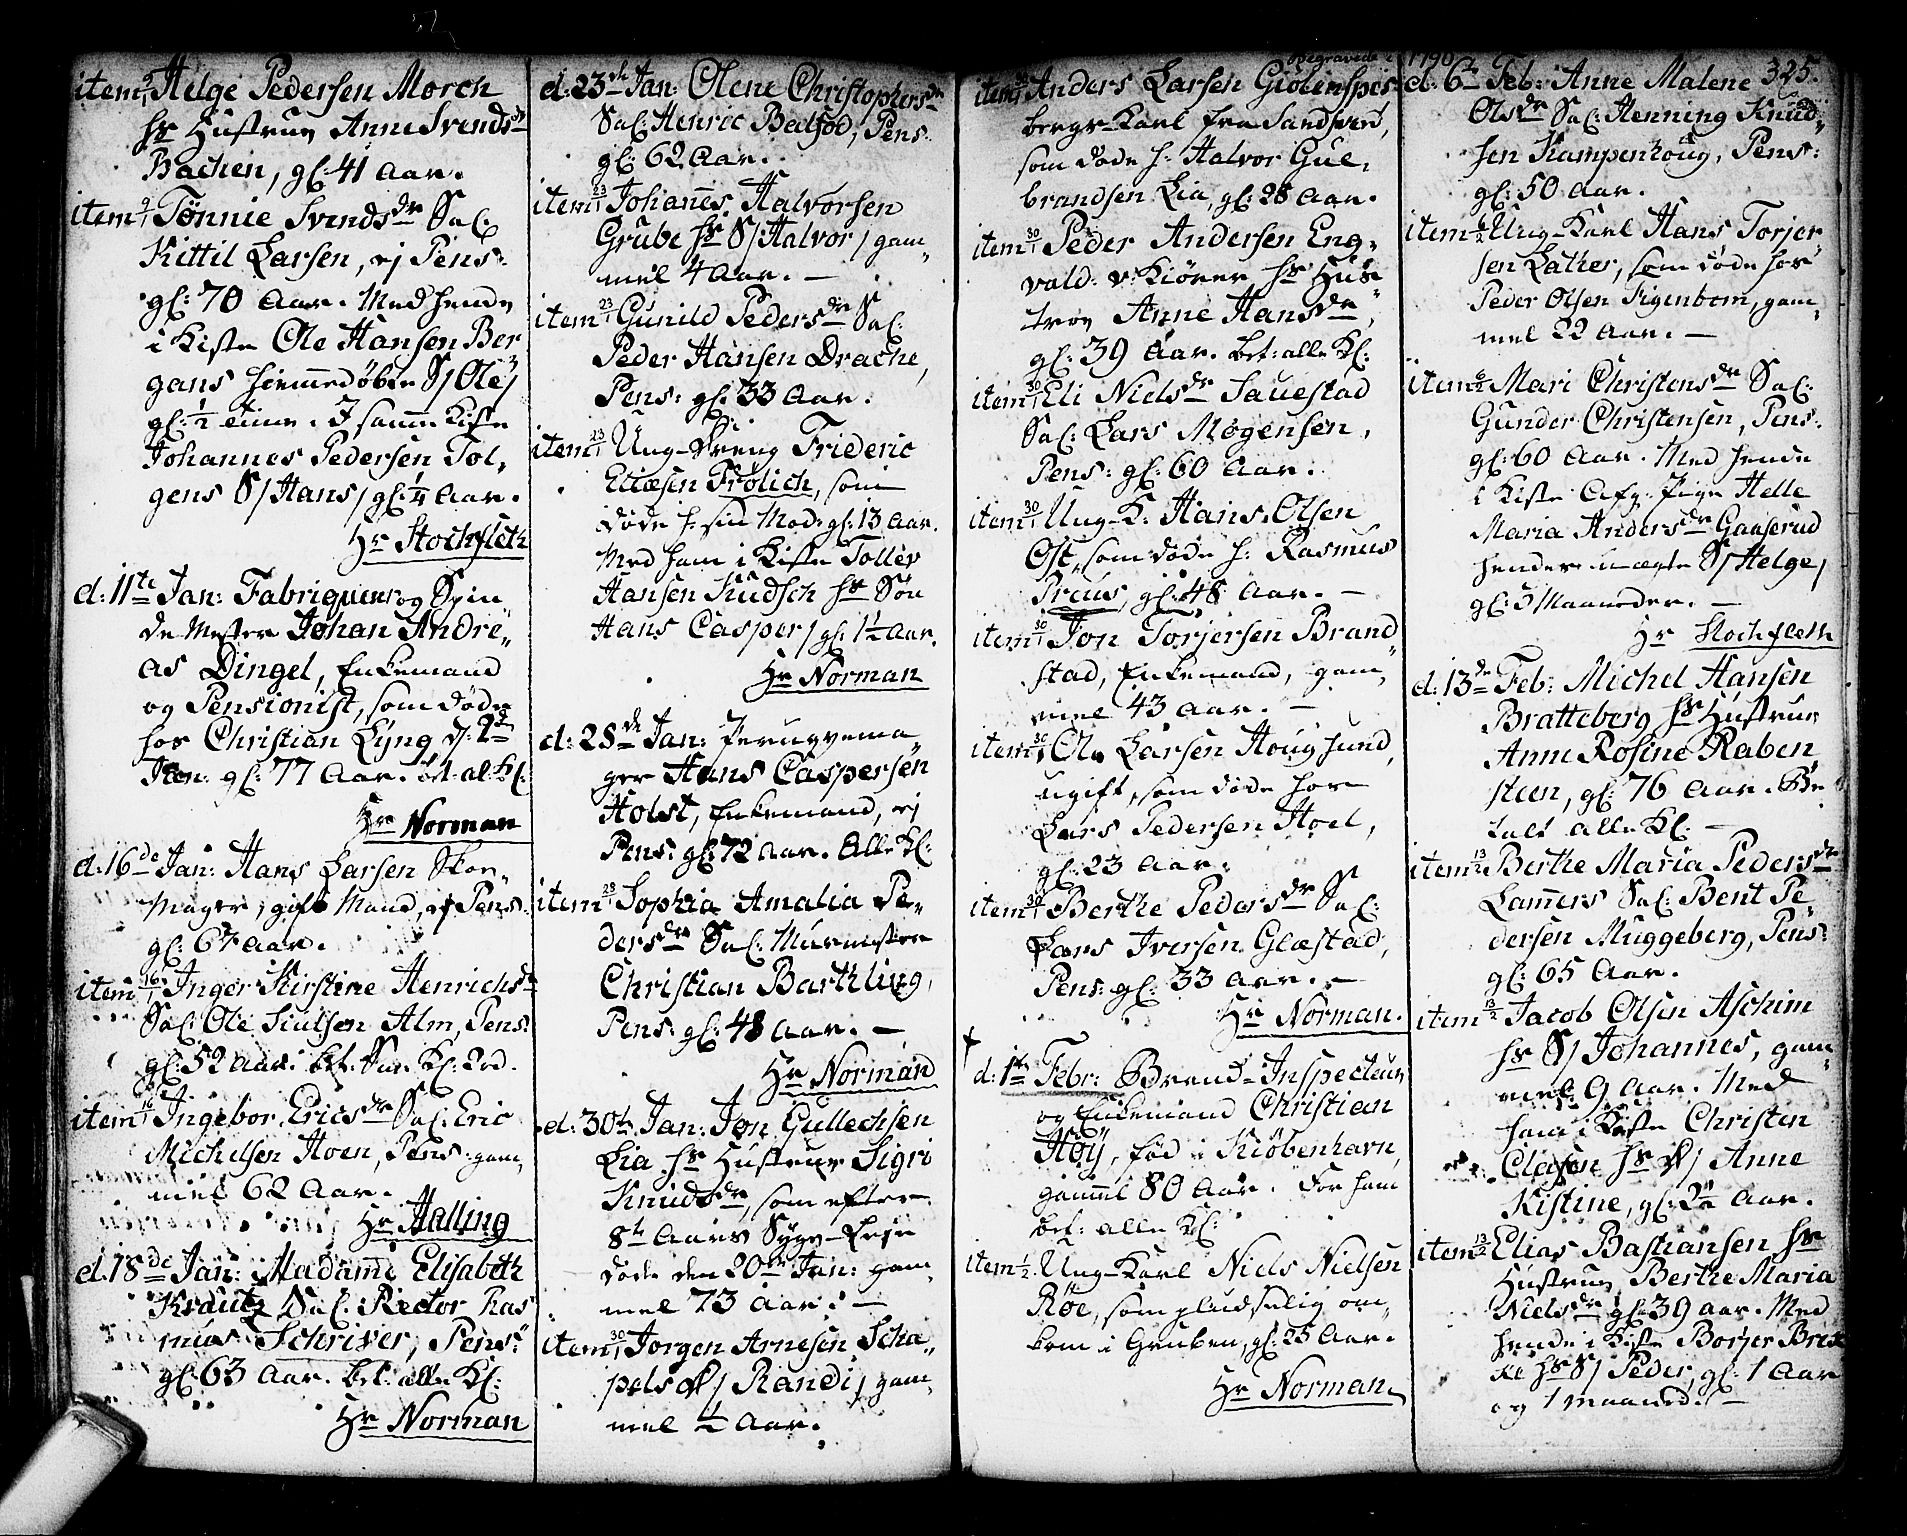 item 9/1 Helge Pedersen Morch
hs Hustrue Anne Svendsdr
Bachen, gl: 41 Aar.
item 9/1 Tønnie Svendsdr Sal:
Kittil Larsen, ej Pens:
gl: 70 Aar. Med hende
i Kiste Ole Hansen Ber
gans hiemmedøbte S/ Ole/
gl: 1/2 time. I samme Kiste
Johannes Pedersen Tol,
gens S/ Hans/ gl: 1/4 Aar.
Hr Stochfleth
d: 11te Jan: Fabriqueur og Spin
de Mester Johan Andre"
as Dingel, Enkemand
og Pensionist, som døde
hos Christian Lyng d: 2d
Jan: gl: 77 Aar. al. Kl.
Hr Norman
d: 16de Jan: Hans Larsen Skor-
mager, gift Mand, ej Pens.
gl: 67 Aar.
item 16/1 Inger Kirstine Henrichsdr
Sal: Ole Siulsen Alm, Pens:
gl: 52 Aar. bet. Kl:
item 16/1 Ingebor Ericsdr Sal: Eric
Michelsen Hoen, Pens: gam,
mel 62 Aar.
Hr Halling
d. 18de Jan: Madame Elisabeth
Krautz Sal: Rector Ras
mus Schriver, Pens:
gl: 63 Aar. bet: alle Kl:
Hr Norman
d: 23de Jan: Olene Christophersdr
Sal: Henric Pens:
gl: 62 Aar.
item 23/1 Johannes Halvorsen
Grube hs S/ Halvor/ gam„
mel 4 Aar. —
item 23/1 Gunild Pedersdr Sal:
Peder Hansen Drache,
Pens: gl: 33 Aar.
item 23/1 Ung-Dreng Frideric
Eliæsen Frølich, som
døde h: sin Mod: gl: 13 Aar.
Med ham i Kiste Tollev
Hansen hs Søn
Hans Casper/ gl: 1 1/2 Aar.
Hr Norman
d: 28de Jan: Peruqvema
ger Hans Caspersen
Holst, Enkemand, ej
Pens: gl: 72 Aar. Alle Kl:
item 28/1 Sophia Amalia Pe-
dersdr Sal: Murmester
Christian Barthling,
Pens: gl: 48 Aar. —
Hr Norman
d: 30te Jan: Jon Gullechsen
Lia hs Hustrue Sigri
Knudsdr, som efter
8te Aars Syge-Leje
døde den 20de Jan: gam„
mel 73 Aar. —
item 30/1 Jørgen Arnesen Scha„
pels D/ Randi/ gam„
mel 1/2 Aar.
Begravede 1790
item 30/1 Anders Larsen
bergs-Karl fra Sandsverd,
som døde h: Halvor Gul,
brandsen Lia, gl: 28 Aar.
item 30/1 Peder Andersen Eng,
vald v: Kiører hs Hus"
troe Anne Hansdr,
gl: 39 Aar. bet: alle Kl:
item 30/1 Eli Nielsdr Sauestad
Sal: Lars Mogensen,
Pens: gl: 60 Aar.
item 30/1 Ung-K: Hans Olsen
Ost, som døde h: Rasmus
Preus, gl: 48 Aar. —
item 30/1 Jon Torjersen Brand
stad, Enkemand, gam„
mel 43 Aar. —
item 30/1 Ole Larsen Houg sund,
ugift, som døde hos
Lars Pedersen Hoel,
gl: 23 Aar.
item 30/1 Berthe Pedersdr Sal:
Lars Iversen Glæstad,
Pens: gl: 33 Aar. —
Hr Norman.
d: 1te Febr: Brend-Inspecteur
og Enkemand Christian
Høÿ, fød i Kiøbenhavn,
gammel 80 Aar. For ham
bet: alle Kl:
item 1/2 Ung-Karl Niels Nielsen
Røe, som pludselig om„
kom i Gruben, gl: 23 Aar.
Hr Norman
325.
d: 6te Feb: Anne Malene
Olsdr Sal: Henning Knud„
sen Kampenhoug, Pens:
gl: 50 Aar.
item 6/2 Ung-Karl Hans Torjer-
sen Lather, som døde hos
Peder Olsen Sigenbom, gam„
mel 22 Aar. —
item 6/2 Mari Christensdr Sal:
Gunder Christensen, Pens.
gl: 60 Aar. Med hende
i Kiste Afg: Pige Helle
Maria Andersdr Gaaserud
hendes uægte S/ Helge/
gl: 3 Maaneder. —
Hr Stochfleth
d: 13de Feb: Michel Hansen
Bratteberg hs Hustrue
Anne Rosine Raben
steen, gl: 76 Aar. Be
talt alle Kl: —
item 13/2 Berthe Maria Pedersdr
Lamers Sal: Bent Pe
dersen Muggeberg, Pens:
gl: 65 Aar.
item 13/2 Jacob Olsen Aschim
hs S/ Johannes, gam„
mel 9 Aar. Med
ham i Kiste Christen
Clasen hs D/ Anne
Kistine, gl: 2 1/2 Aar.
item 13/2 Elias Bastiansen hs
Hustrue Berthe Maria
Nielsdr gl: 39 Aar. Med
hende i Kiste Borger
hs S/ Peder, gl: 1 Aar
og 1 maaned. —